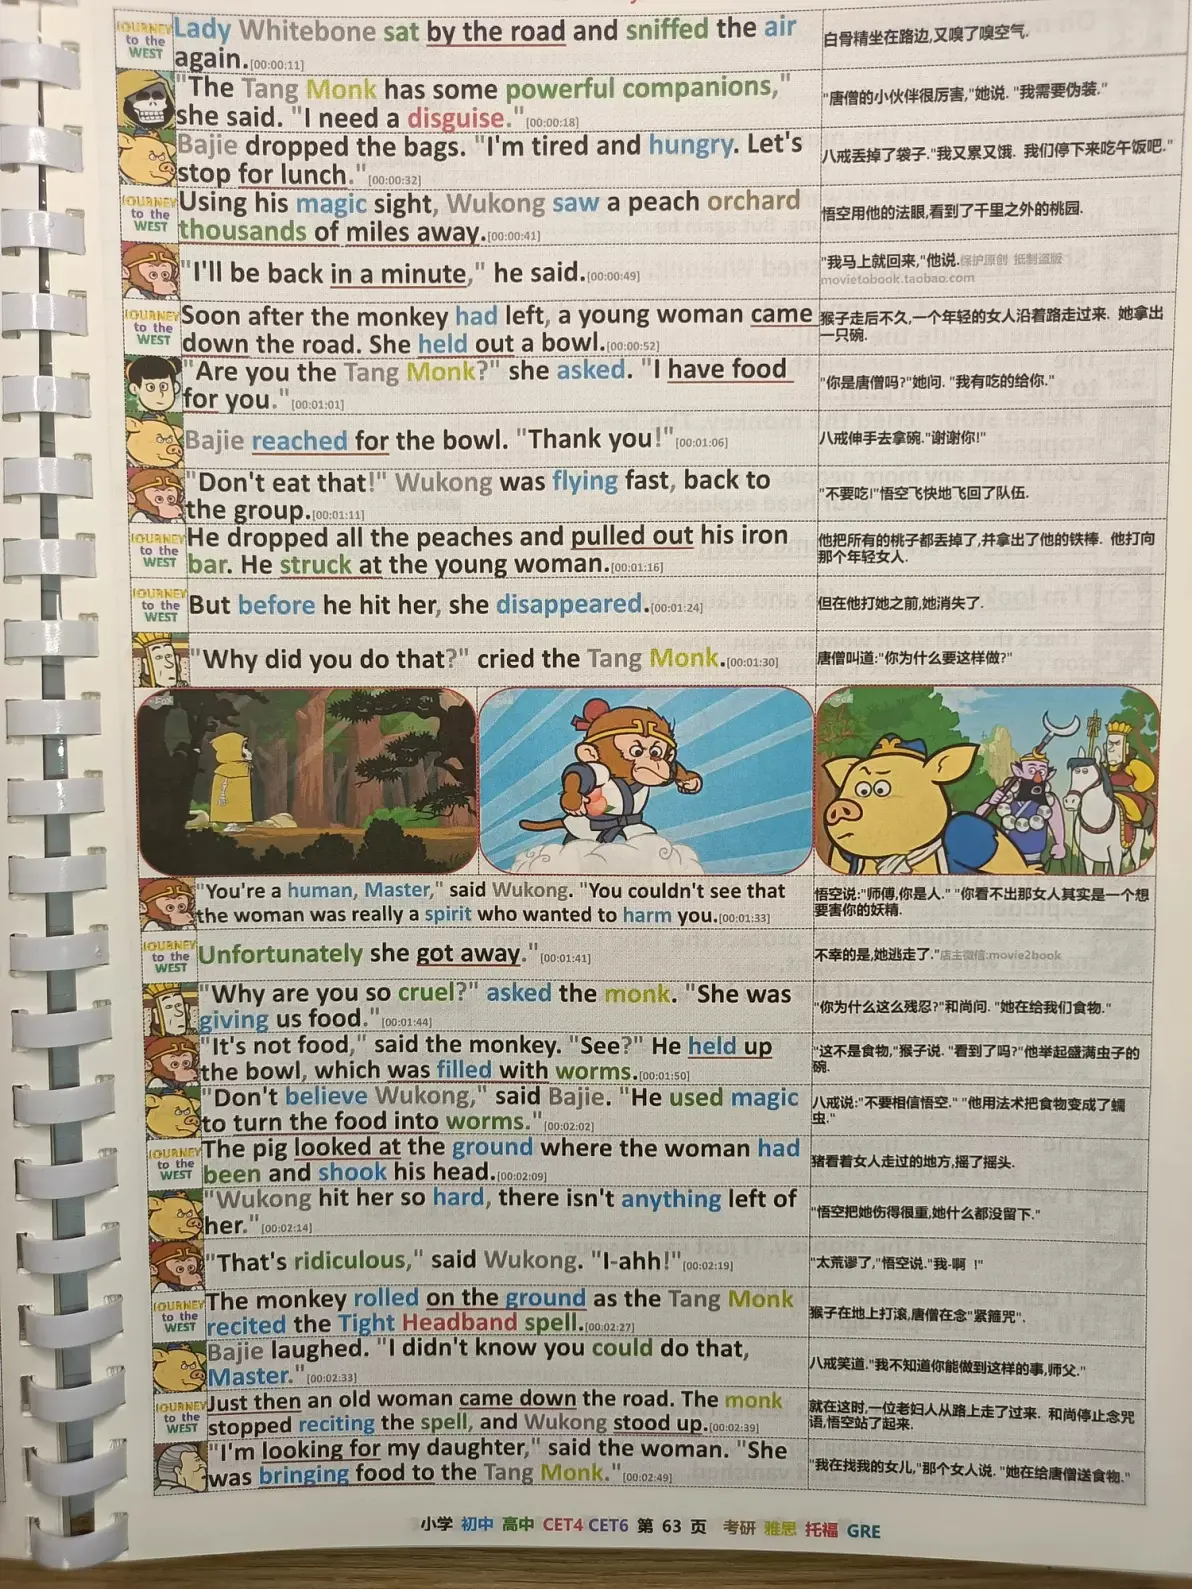 JOURNEY
to the
WEST
Lady Whitebone sat by the road and sniffed the air
again.[00:00:11]
白骨精坐在路边,又嗅了嗅空气.
"The Tang Monk has some powerful companions,"
she said. "I need a disguise."[00:00:18]
"唐僧的小伙伴很厉害,"她说. "我需要伪装."
Bajie dropped the bags. "I'm tired and hungry. Let's
stop for lunch."[00:00:32]
八戒丢掉了袋子."我又累又饿. 我们停下来吃午饭吧."
JOURNEY
to the
WEST
Using his magic sight, Wukong saw a peach orchard
thousands of miles away.[00:00:41]
悟空用他的法眼,看到了千里之外的桃园.
"I'll be back in a minute," he said.[00:00:49]
"我马上就回来,"他说.保护原创 抵制盗版
movietobook.taobao.com
JOURNEY
to the
WEST
Soon after the monkey had left, a young woman came
down the road. She held out a bowl.[00:00:52]
猴子走后不久,一个年轻的女人沿着路走过来. 她拿出
一只碗.
"Are you the Tang Monk?" she asked. "I have food
for you."[00:01:01]
"你是唐僧吗?"她问. "我有吃的给你."
Bajie reached for the bowl. "Thank you!"[00:01:06]
八戒伸手去拿碗."谢谢你!"
"Don't eat that!" Wukong was flying fast, back to
the group.[00:01:11]
"不要吃!"悟空飞快地飞回了队伍.
JOURNEY
to the
WEST
He dropped all the peaches and pulled out his iron
bar. He struck at the young woman.[00:01:16]
他把所有的桃子都丢掉了,并拿出了他的铁棒. 他打向
那个年轻女人.
JOURNEY
to the
WEST
But before he hit her, she disappeared.[00:01:24]
但在他打她之前,她消失了.
"Why did you do that?" cried the Tang Monk.[00:01:30]
唐僧叫道:"你为什么要这样做?"
"You're a human, Master," said Wukong. "You couldn't see that
the woman was really a spirit who wanted to harm you.[00:01:33]
悟空说:"师傅,你是人." "你看不出那女人其实是一个想
要害你的妖精.
JOURNEY
to the
WEST
Unfortunately she got away."[00:01:41]
不幸的是,她逃走了."店主微信:movie2book
"Why are you so cruel?" asked the monk. "She was
giving us food."[00:01:44]
"你为什么这么残忍?"和尚问. "她在给我们食物."
"It's not food," said the monkey. "See?" He held up
the bowl, which was filled with worms.[00:01:50]
"这不是食物,"猴子说. "看到了吗?"他举起盛满虫子的
碗.
"Don't believe Wukong," said Bajie. "He used magic
to turn the food into worms."[00:02:02]
八戒说:"不要相信悟空." "他用法术把食物变成了蠕
虫."
JOURNEY
to the
WEST
The pig looked at the ground where the woman had
been and shook his head.[00:02:09]
猪看着女人走过的地方,摇了摇头.
"Wukong hit her so hard, there isn't anything left of
her."[00:02:14]
"悟空把她伤得很重,她什么都没留下."
"That's ridiculous," said Wukong. "I-ahh!"[00:02:19]
"太荒谬了,"悟空说."我-啊 !"
JOURNEY
to the
WEST
The monkey rolled on the ground as the Tang Monk
recited the Tight Headband spell.[00:02:27]
猴子在地上打滚,唐僧在念"紧箍咒".
Bajie laughed. "I didn't know you could do that,
Master."[00:02:33]
八戒笑道."我不知道你能做到这样的事,师父."
JOURNEY
to the
WEST
Just then an old woman came down the road. The monk
stopped reciting the spell, and Wukong stood up.[00:02:39]
就在这时,一位老妇人从路上走了过来. 和尚停止念咒
语,悟空站了起来.
"I'm looking for my daughter," said the woman. "She
was bringing food to the Tang Monk."[00:02:49]
"我在找我的女儿,"那个女人说. "她在给唐僧送食物."
小学 初中 高中 CET4 CET6 第 63 页 考研 雅思 托福 GRE